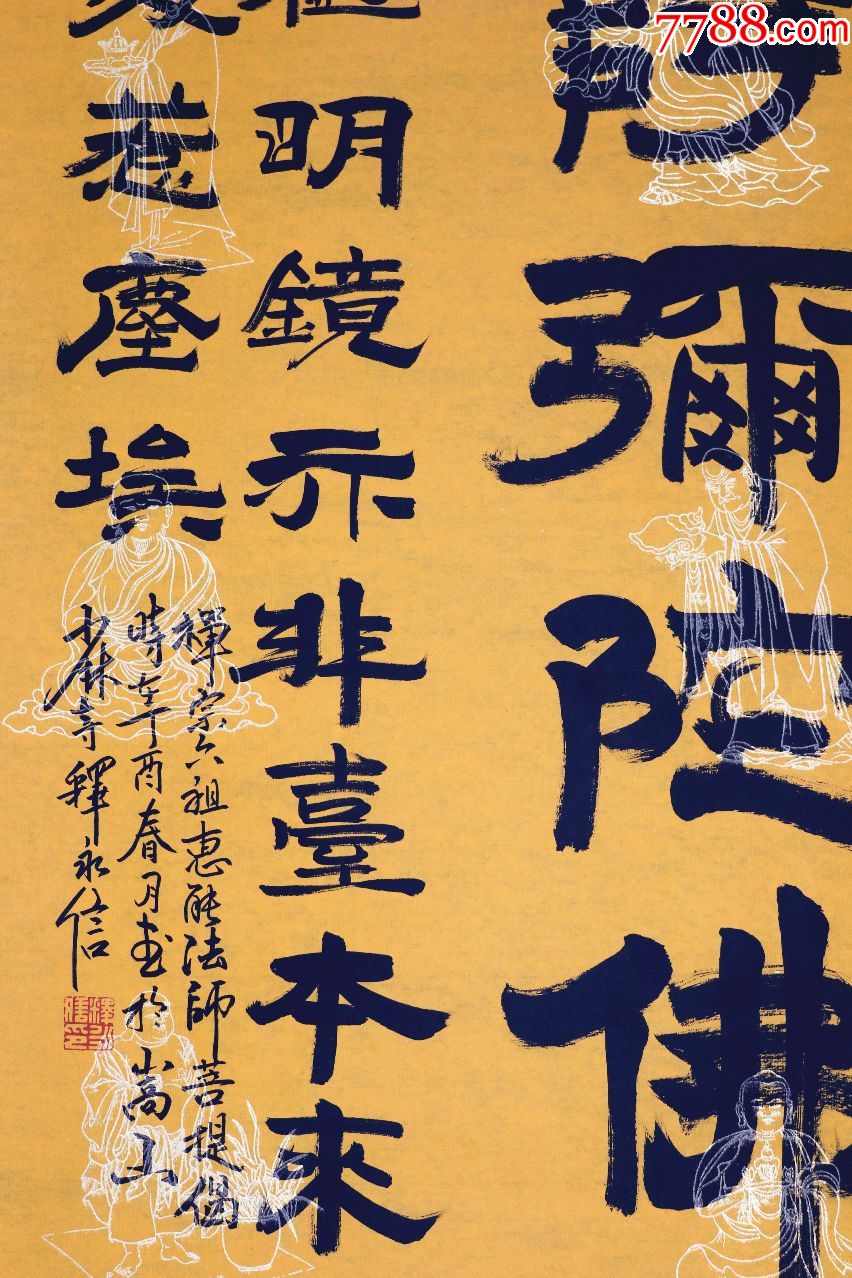 7788.com
阿彌陀佛
明鏡亦非臺本來
惹塵埃
禪宗六祖惠能法師菩提偈
時在丁酉春月書於嵩山
少林寺釋永信